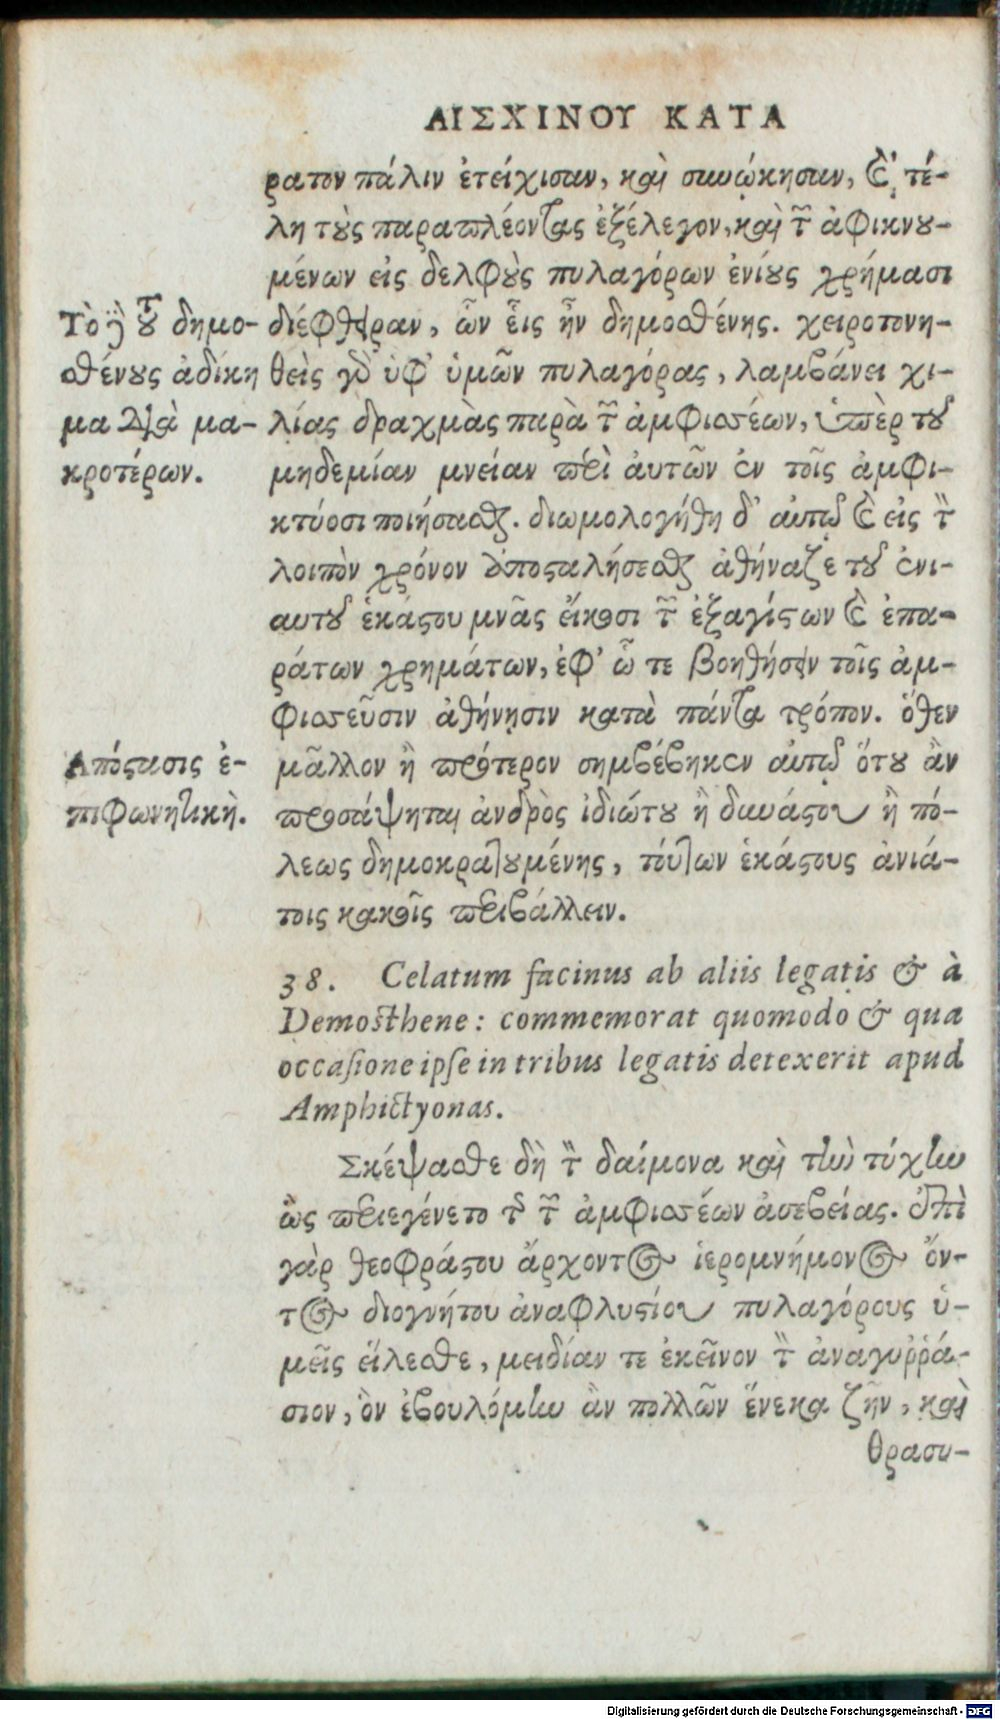 ΑΙΣΧΙΝΟΥ ΚΑΤΑ
ρατον πάλιν ἐτείχισαν, καὶ συνῴκησαν, καὶ τέ-
λη τοὺς παραπλέοντας ἐξέλεγον, καὶ τῶν ἀφικνου-
μένων εἰς δελφοὺς πυλαγόρων ἐνίους χρήμασι
διέφθειραν, ὧν εἷς ἦν δημοσθένης. χειροτονη-
θεὶς γὰρ ὑφ' ὑμῶν πυλαγόρας, λαμβάνει χι-
λίας δραχμὰς παρὰ τῶν ἀμφισσέων, ὑπὲρ τοῦ
μηδεμίαν μνείαν περὶ αὐτῶν ἐν τοῖς ἀμφι-
κτύοσι ποιήσασθαι. διωμολογήθη δ' αὐτῷ καὶ εἰς τὸν
λοιπὸν χρόνον ἀποσταλήσεσθαι ἀθήναζε τοῦ ἐνι-
αυτοῦ ἑκάστου μνᾶς εἴκοσι τῶν ἐξαγίστων καὶ ἐπα-
ράτων χρημάτων, ἐφ' ᾧ τε βοηθήσειν τοῖς ἀμ-
φισσεῦσιν ἀθήνησιν κατὰ πάντα τρόπον. ὅθεν
μᾶλλον ἢ πρότερον συμβέβηκεν αὐτῷ ὅτου ἂν
προσάψηται ἀνδρὸς ἰδιώτου ἢ δυνάστου ἢ πό-
λεως δημοκρατουμένης, τούτων ἑκάστους ἀνιά-
τοις κακοῖς περιβάλλειν.
Τὸ γ τοῦ δημο-
σθένους ἀδίκη
μα διὰ μα-
κροτέρων.
Ἀπόστασις ἐ-
πιφωνητικὴ.
38. Celatum facinus ab aliis legatis & à
Demosthene: commemorat quomodo & qua
occasione ipse in tribus legatis detexerit apud
Amphictyonas.
Σκέψασθε δὴ τὸν δαίμονα καὶ τὴν τύχην
ὡς περιεγένετο τῆς τῶν ἀμφισσέων ἀσεβείας. ἐπὶ
γὰρ θεοφράστου ἄρχοντος ἱερομνήμονος ὄν-
τος διογνήτου ἀναφλυστίου πυλαγόρους ὑ-
μεῖς εἵλεσθε, μειδίαν τε ἐκεῖνον τὸν ἀναγυῤῥά-
σιον, ὃν ἐβουλόμην ἂν πολλῶν ἕνεκα ζῆν, καὶ
θρασυ-
Digitalisierung gefördert durch die Deutsche Forschungsgemeinschaft - DFG